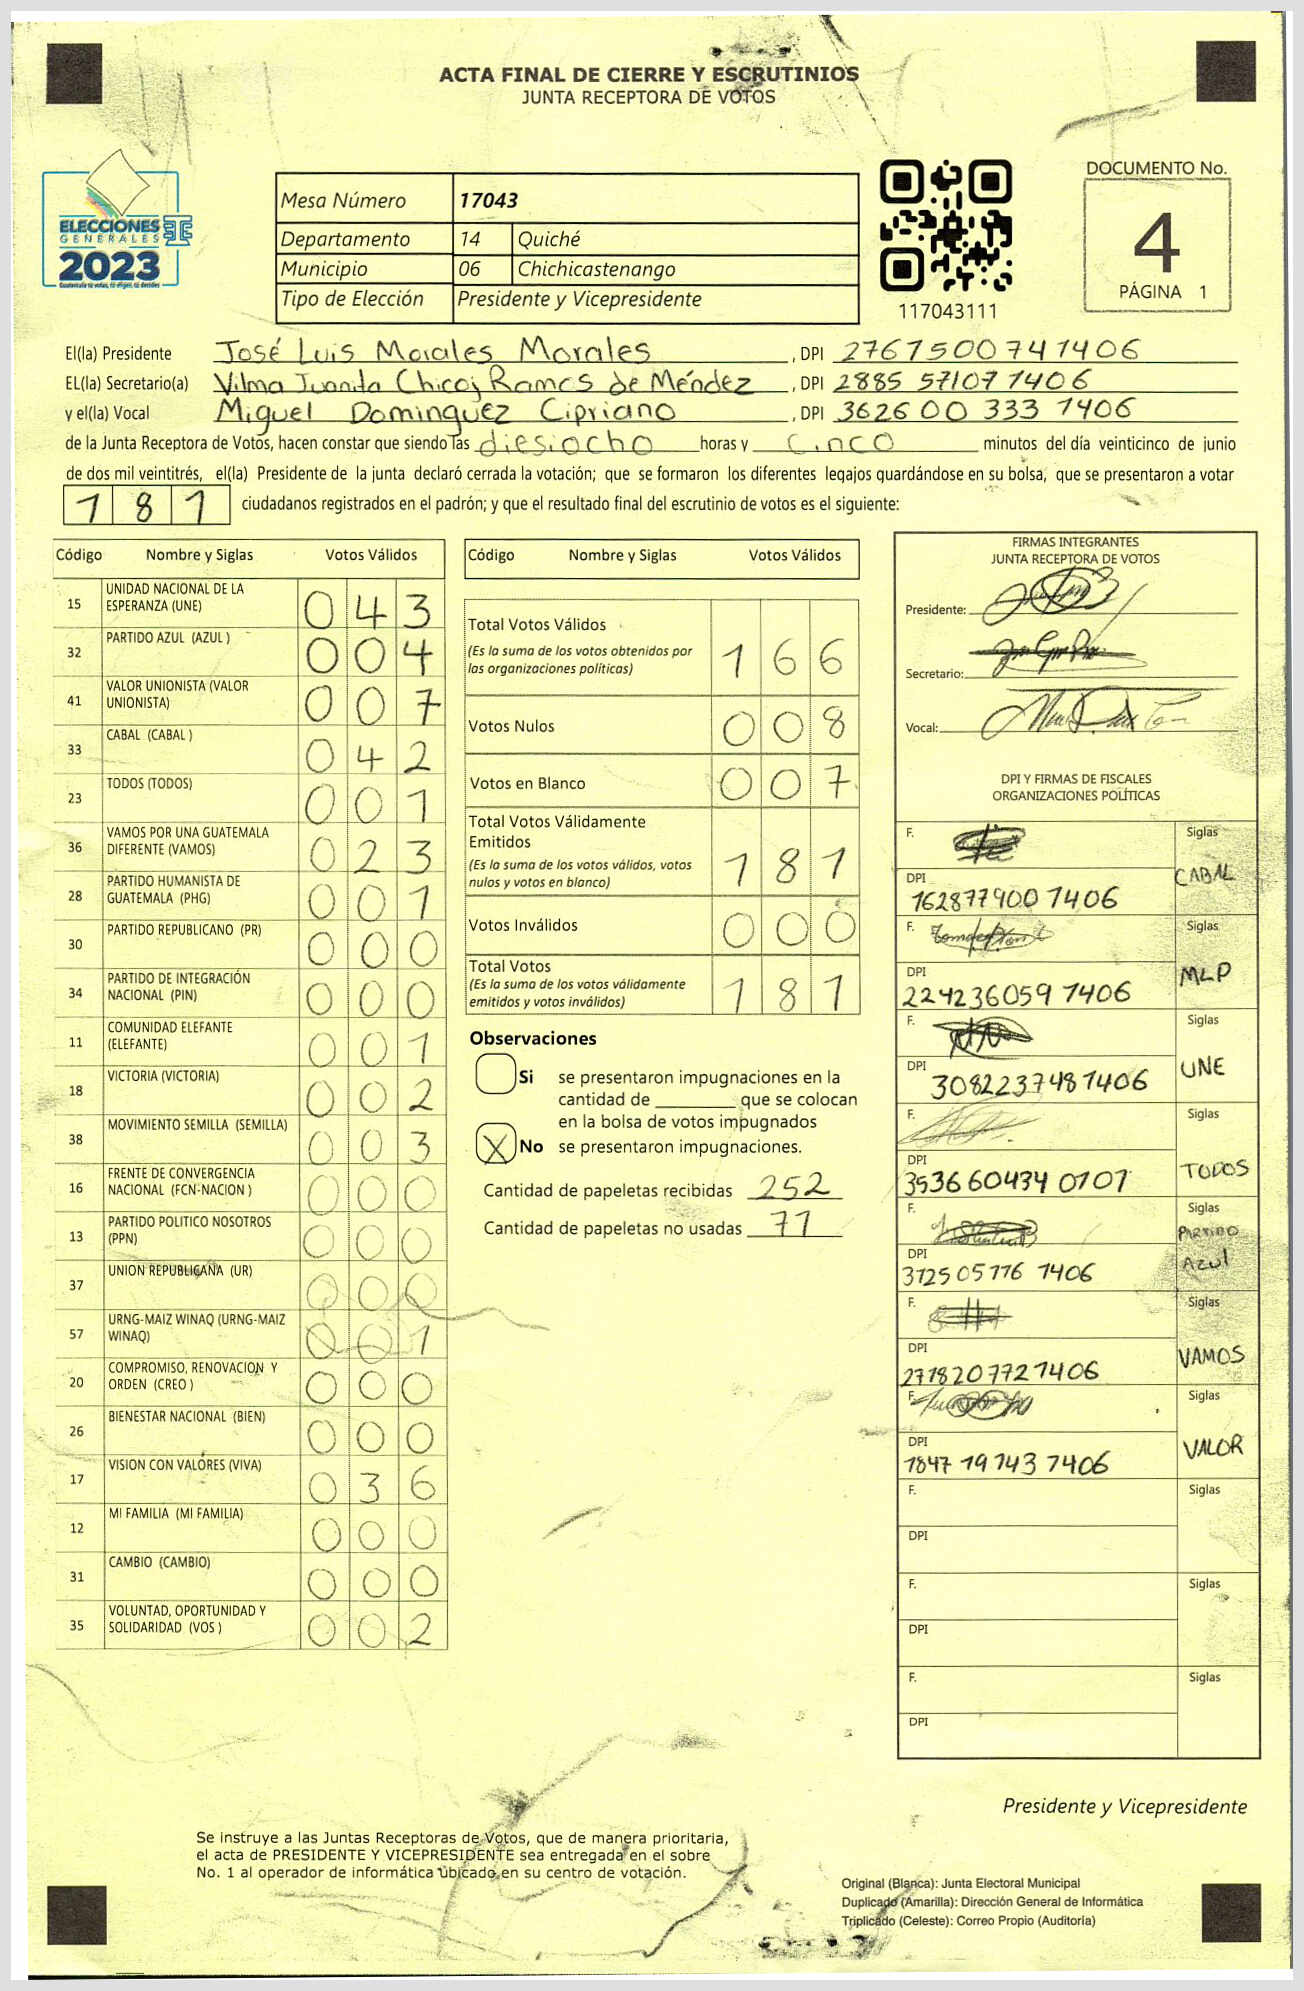 ACTA FINAL DE CIERRE Y ESCRUTINIOS
JUNTA RECEPTORA DE VOTOS
ELECCIONES
GENERALES
2023
Guatemala tú votas, tú eliges, tú decides
Mesa Número 17043
Departamento 14 Quiché
Municipio 06 Chichicastenango
Tipo de Elección Presidente y Vicepresidente
117043111
DOCUMENTO No.
4
PÁGINA 1
El(la) Presidente José Luis Morales Morales, DPI 2767500741406
EL(la) Secretario(a) Vilma Juanita Chicoj Ramos de Méndez, DPI 2885 57107 1406
y el(la) Vocal Miguel Dominguez Cipriano, DPI 3626 00 333 1406
de la Junta Receptora de Votos, hacen constar que siendo las diesiocho horas y cinco minutos del día veinticinco de junio
de dos mil veintitrés, el(la) Presidente de la junta declaró cerrada la votación; que se formaron los diferentes legajos guardándose en su bolsa, que se presentaron a votar
181 ciudadanos registrados en el padrón; y que el resultado final del escrutinio de votos es el siguiente:
Código Nombre y Siglas Votos Válidos
15 UNIDAD NACIONAL DE LA ESPERANZA (UNE) 043
32 PARTIDO AZUL (AZUL ) 004
41 VALOR UNIONISTA (VALOR UNIONISTA) 007
33 CABAL (CABAL ) 042
23 TODOS (TODOS) 001
36 VAMOS POR UNA GUATEMALA DIFERENTE (VAMOS) 023
28 PARTIDO HUMANISTA DE GUATEMALA (PHG) 001
30 PARTIDO REPUBLICANO (PR) 000
34 PARTIDO DE INTEGRACIÓN NACIONAL (PIN) 000
11 COMUNIDAD ELEFANTE (ELEFANTE) 001
18 VICTORIA (VICTORIA) 002
38 MOVIMIENTO SEMILLA (SEMILLA) 003
16 FRENTE DE CONVERGENCIA NACIONAL (FCN-NACION ) 000
13 PARTIDO POLITICO NOSOTROS (PPN) 000
37 UNION REPUBLICANA (UR) 000
57 URNG-MAIZ WINAQ (URNG-MAIZ WINAQ) 001
20 COMPROMISO, RENOVACION Y ORDEN (CREO ) 000
26 BIENESTAR NACIONAL (BIEN) 000
17 VISION CON VALORES (VIVA) 036
12 MI FAMILIA (MI FAMILIA) 000
31 CAMBIO (CAMBIO) 000
35 VOLUNTAD, OPORTUNIDAD Y SOLIDARIDAD (VOS ) 002
Código Nombre y Siglas Votos Válidos
Total Votos Válidos 166
(Es la suma de los votos obtenidos por las organizaciones políticas)
Votos Nulos 008
Votos en Blanco 007
Total Votos Válidamente Emitidos 181
(Es la suma de los votos válidos, votos nulos y votos en blanco)
Votos Inválidos 000
Total Votos 181
(Es la suma de los votos válidamente emitidos y votos inválidos)
Observaciones
Si se presentaron impugnaciones en la
cantidad de ________ que se colocan
en la bolsa de votos impugnados
X No se presentaron impugnaciones.
Cantidad de papeletas recibidas 252
Cantidad de papeletas no usadas 71
FIRMAS INTEGRANTES
JUNTA RECEPTORA DE VOTOS
Presidente:
Secretario:
Vocal:
DPI Y FIRMAS DE FISCALES
ORGANIZACIONES POLÍTICAS
F. Siglas
CABAL
DPI
162877900 1406
F. Siglas
MLP
DPI
224236059 1406
F. Siglas
UNE
DPI
3082237481406
F. Siglas
TODOS
DPI
353660434 0101
F. Siglas
PARTIDO
AZUL
DPI
312505776 1406
F. Siglas
VAMOS
DPI
2718207721406
F. Siglas
VALOR
DPI
1847 19143 1406
F. Siglas
DPI
F. Siglas
DPI
F. Siglas
DPI
Presidente y Vicepresidente
Se instruye a las Juntas Receptoras de Votos, que de manera prioritaria,
el acta de PRESIDENTE Y VICEPRESIDENTE sea entregada en el sobre
No. 1 al operador de informática ubicado en su centro de votación.
Original (Blanca): Junta Electoral Municipal
Duplicado (Amarilla): Dirección General de Informática
Triplicado (Celeste): Correo Propio (Auditoría)